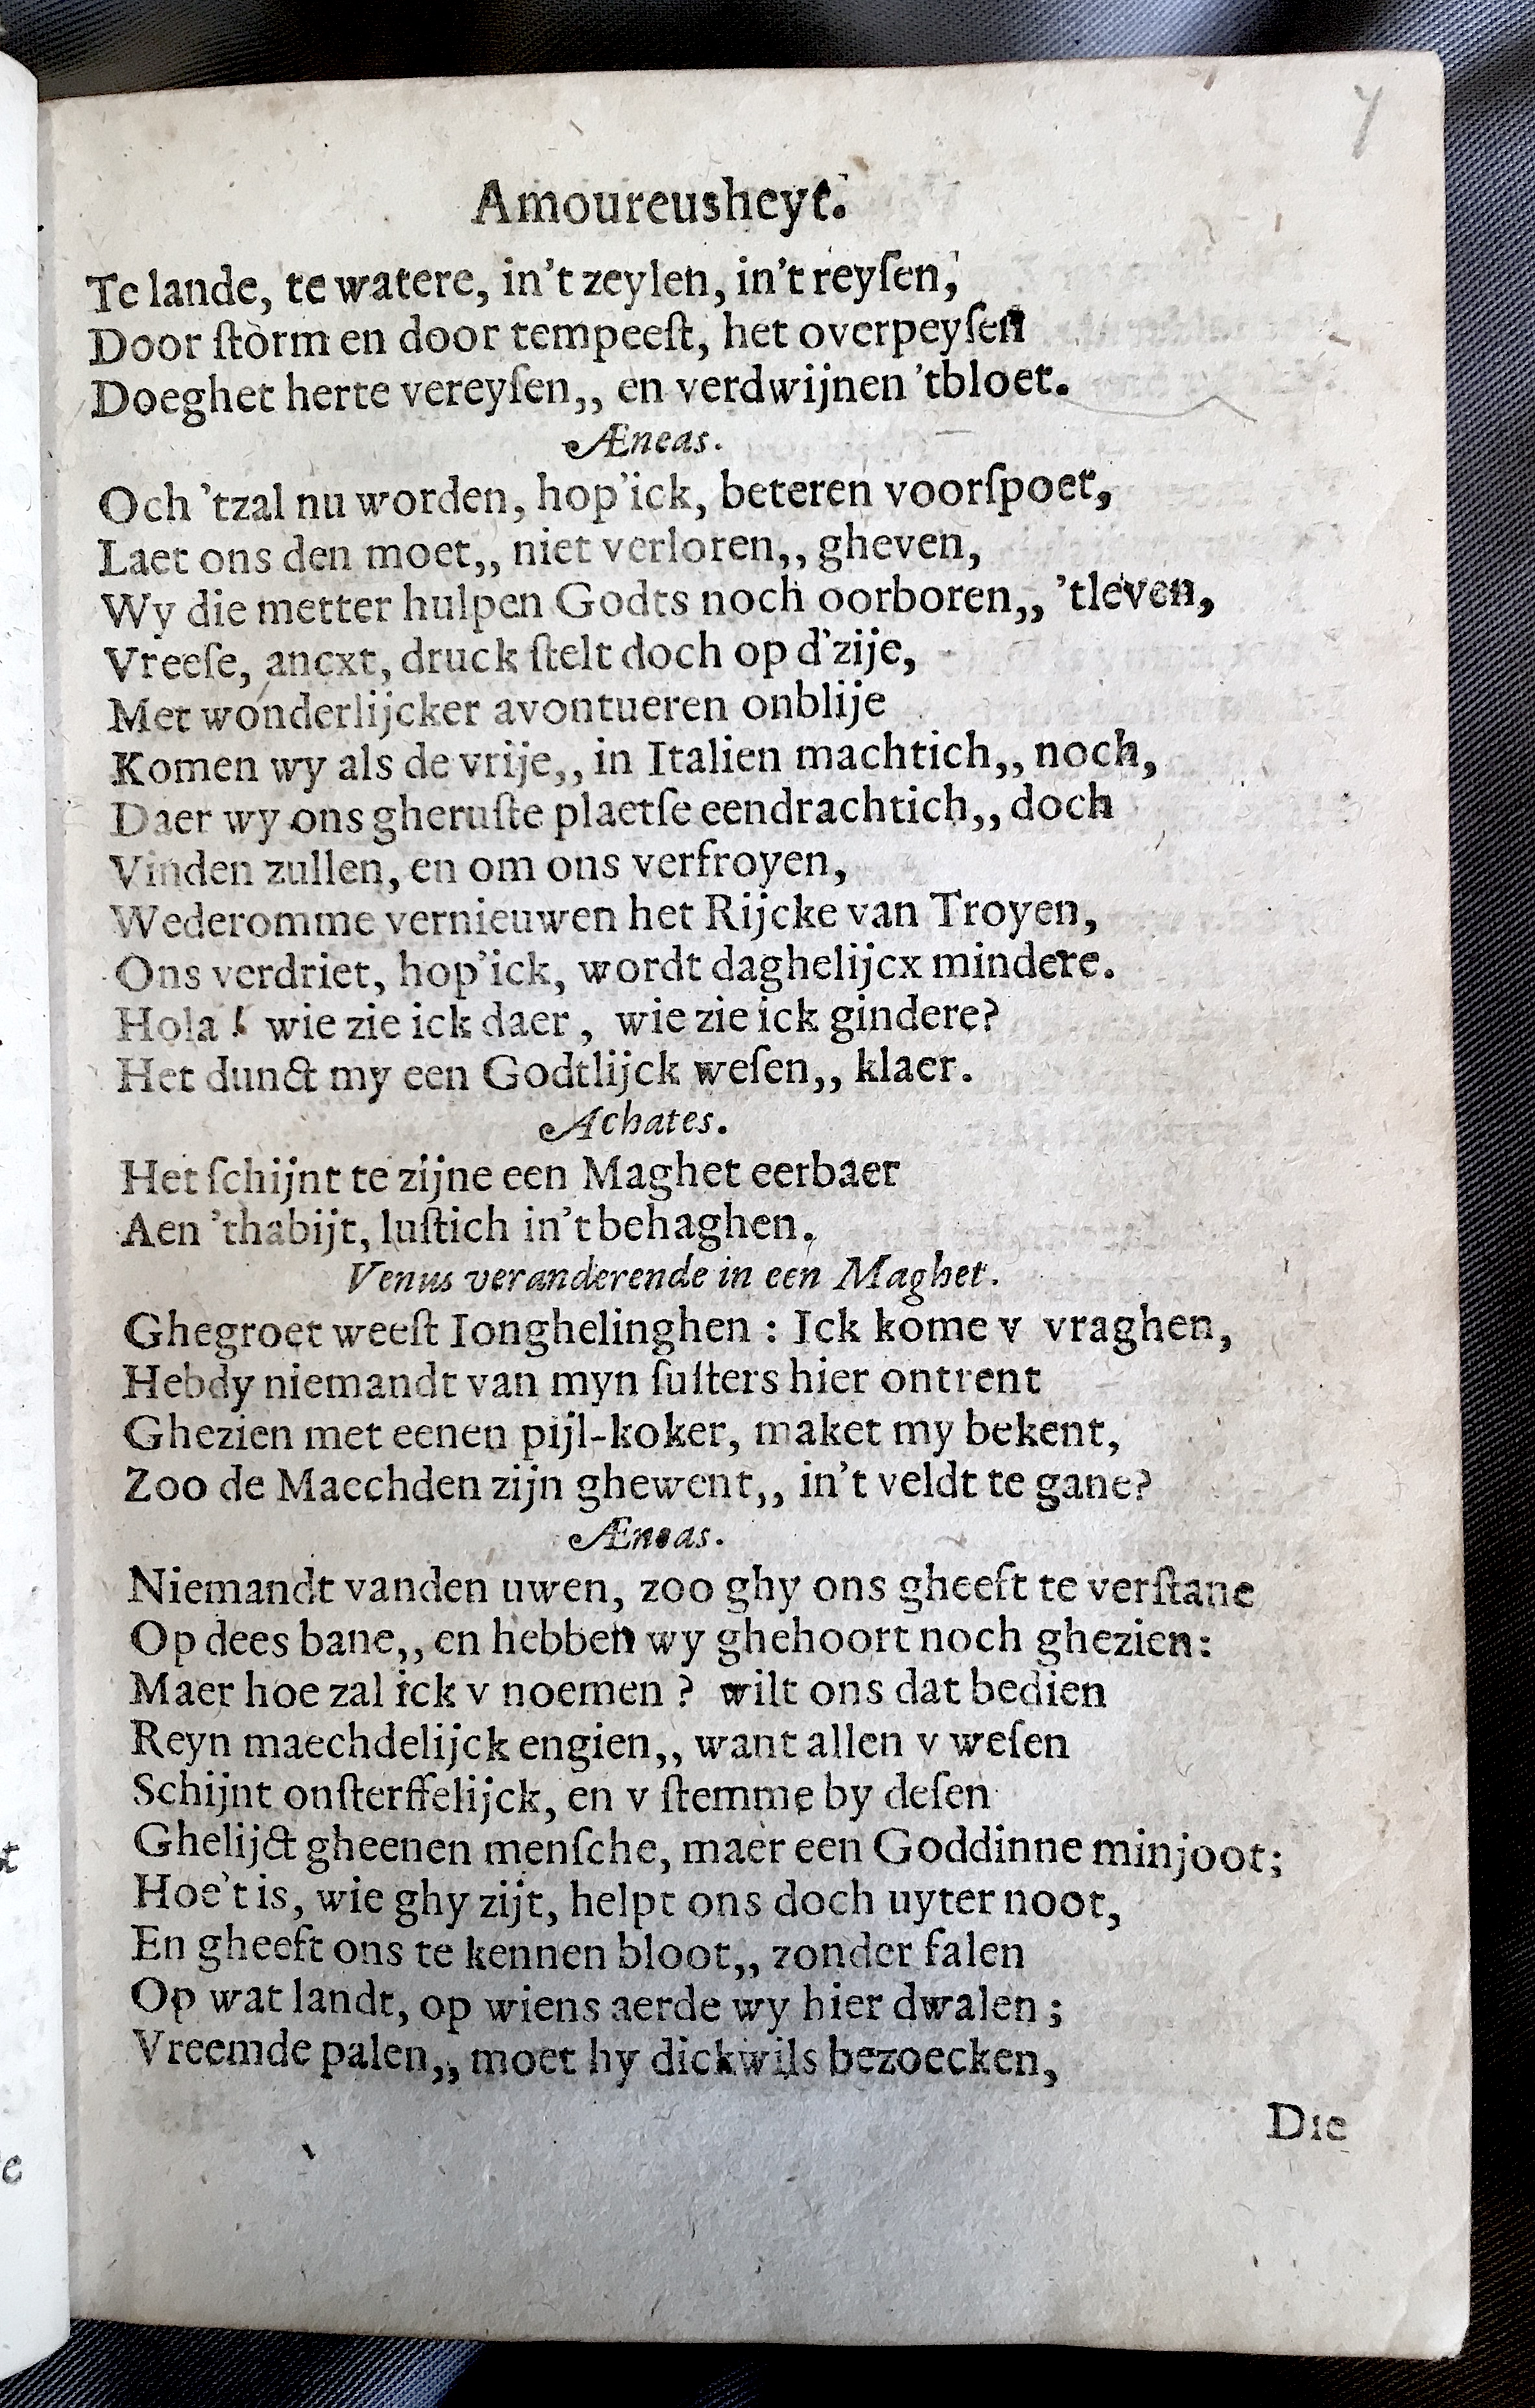 7
Amoureusheyt.
Te lande, te watere, in't zeylen, in't reyſen,
Door ſtorm en door tempeeſt, het overpeyſen
Doeghet herte vereyſen,, en verdwijnen 'tbloet.
Æneas.
Och 'tzal nu worden, hop'ick, beteren voorſpoet,
Laet ons den moet,, niet verloren,, gheven,
Wy die metter hulpen Godts noch oorboren,, 'tleven,
Vreeſe, ancxt, druck ſtelt doch op d'zije,
Met wonderlijcker avontueren onblije
Komen wy als de vrije,, in Italien machtich,, noch,
Daer wy ons gheruſte plaetſe eendrachtich,, doch
Vinden zullen, en om ons verfroyen,
Wederomme vernieuwen het Rijcke van Troyen,
Ons verdriet, hop'ick, wordt daghelijcx mindere.
Hola! wie zie ick daer, wie zie ick gindere?
Het dunct my een Godtlijck weſen,, klaer.
Achates.
Het ſchijnt te zijne een Maghet eerbaer
Aen 'thabijt, luſtich in't behaghen.
Venus veranderende in een Maghet.
Ghegroet weeſt Ionghelinghen : Ick kome v vraghen,
Hebdy niemandt van myn ſuſters hier ontrent
Ghezien met eenen pijl-koker, maket my bekent,
Zoo de Maechden zijn ghewent,, in't veldt te gane?
Æneas.
Niemandt vanden uwen, zoo ghy ons gheeft te verſtane
Op dees bane,, en hebben wy ghehoort noch ghezien:
Maer hoe zal ick v noemen? wilt ons dat bedien
Reyn maechdelijck engien,, want allen v weſen
Schijnt onſterffelijck, en v ſtemme by deſen
Ghelijct gheenen menſche, maer een Goddinne minjoot;
Hoe't is, wie ghy zijt, helpt ons doch uyter noot,
En gheeft ons te kennen bloot,, zonder falen
Op wat landt, op wiens aerde wy hier dwalen;
Vreemde palen,, moet hy dickwils bezoecken,
Die